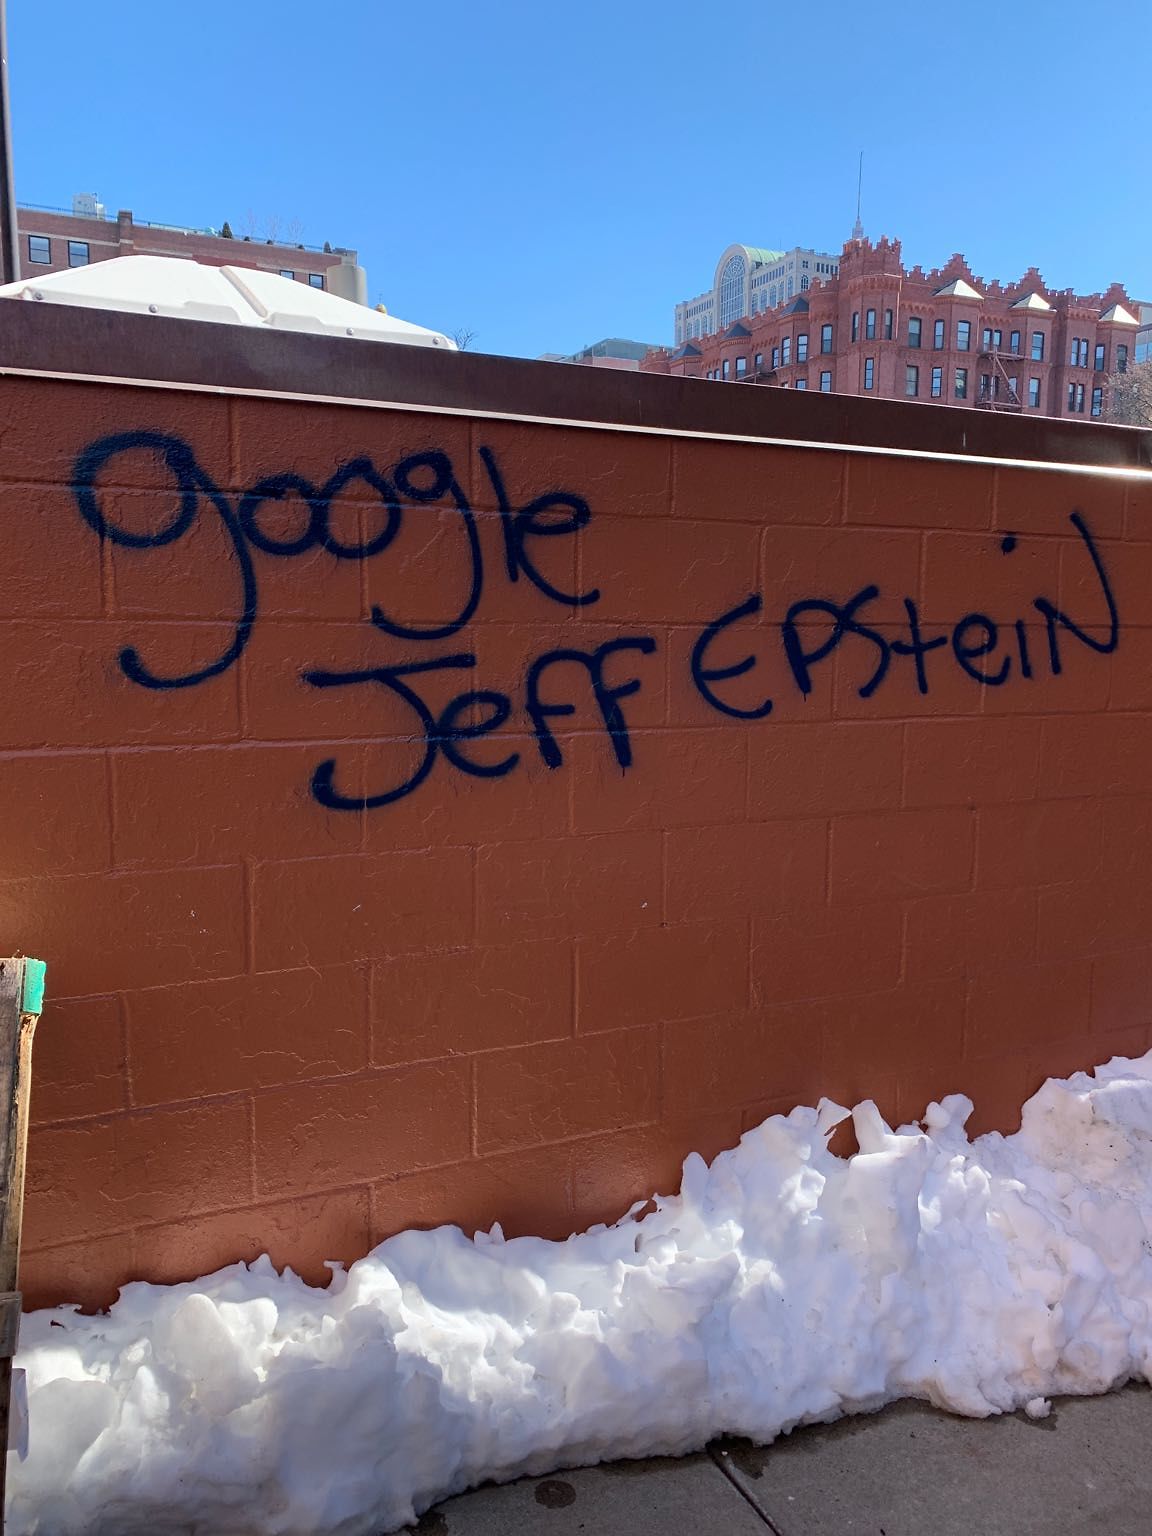 google
Jeff EpsteiN